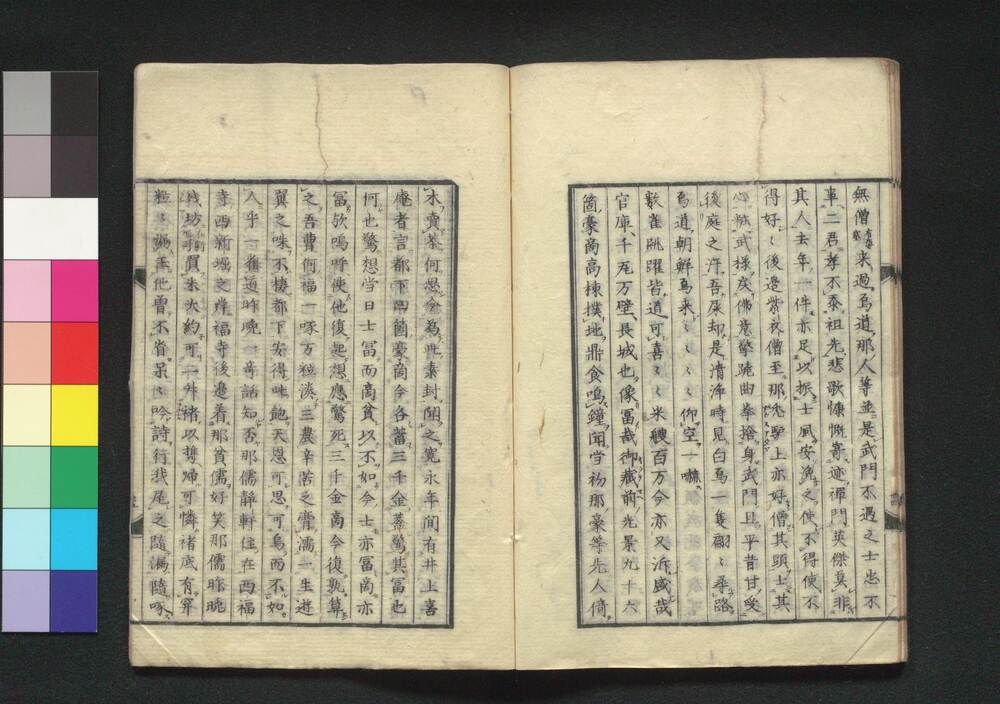 無僧来過烏道那人等並是武門不遇之士忠不
事二君孝不忝祖先悲歌慷慨寄迹禅門英傑莫非
其人去年一件亦足以振士風安漁之使不得使不
得好〻後辺紫衣僧至那禿驢上亦好僧其頭士其
心然武様戻佛意擎跪曲拳捨身武門且平昔甘受
後庭之汚吾屎却是清浄時見白烏一隻翩〻尋路
烏道朝鮮烏来〻〻〻仰空一嚇
数雀跳躍皆道可喜〻〻米艘百万今亦又泝盛哉
官庫千尾万壁長城也像冨哉御蔵前光景九十六
箇豪商高棟撲地鼎食鳴鐘聞当初那豪等先人倚
木売茶何思今為此素封聞之寛永年間有井上善
庵者言都下四箇豪商今各蓄三千金蓋驚其冨也
何也驚想当日士冨而商貧以不如今士亦冨商亦
冨欤嗚呼使他復起想應驚死三千金商今復孰算
之吾曹何福一啄万粒湊三農辛苦之膏濡一生遊
翼之味不棲都下安得味飽天恩可思可烏而不如
人乎一雀道昨晩一奇話知否那儒静軒住在西福
寺西新堀之岸福寺後辺着那貧儒好笑那儒昨晩
銭坊打買米火約可一舛褚以携帰可憐褚底有穿
粒〻漏玉他曽不省呆〻吟詩行我尾之随漏随啄